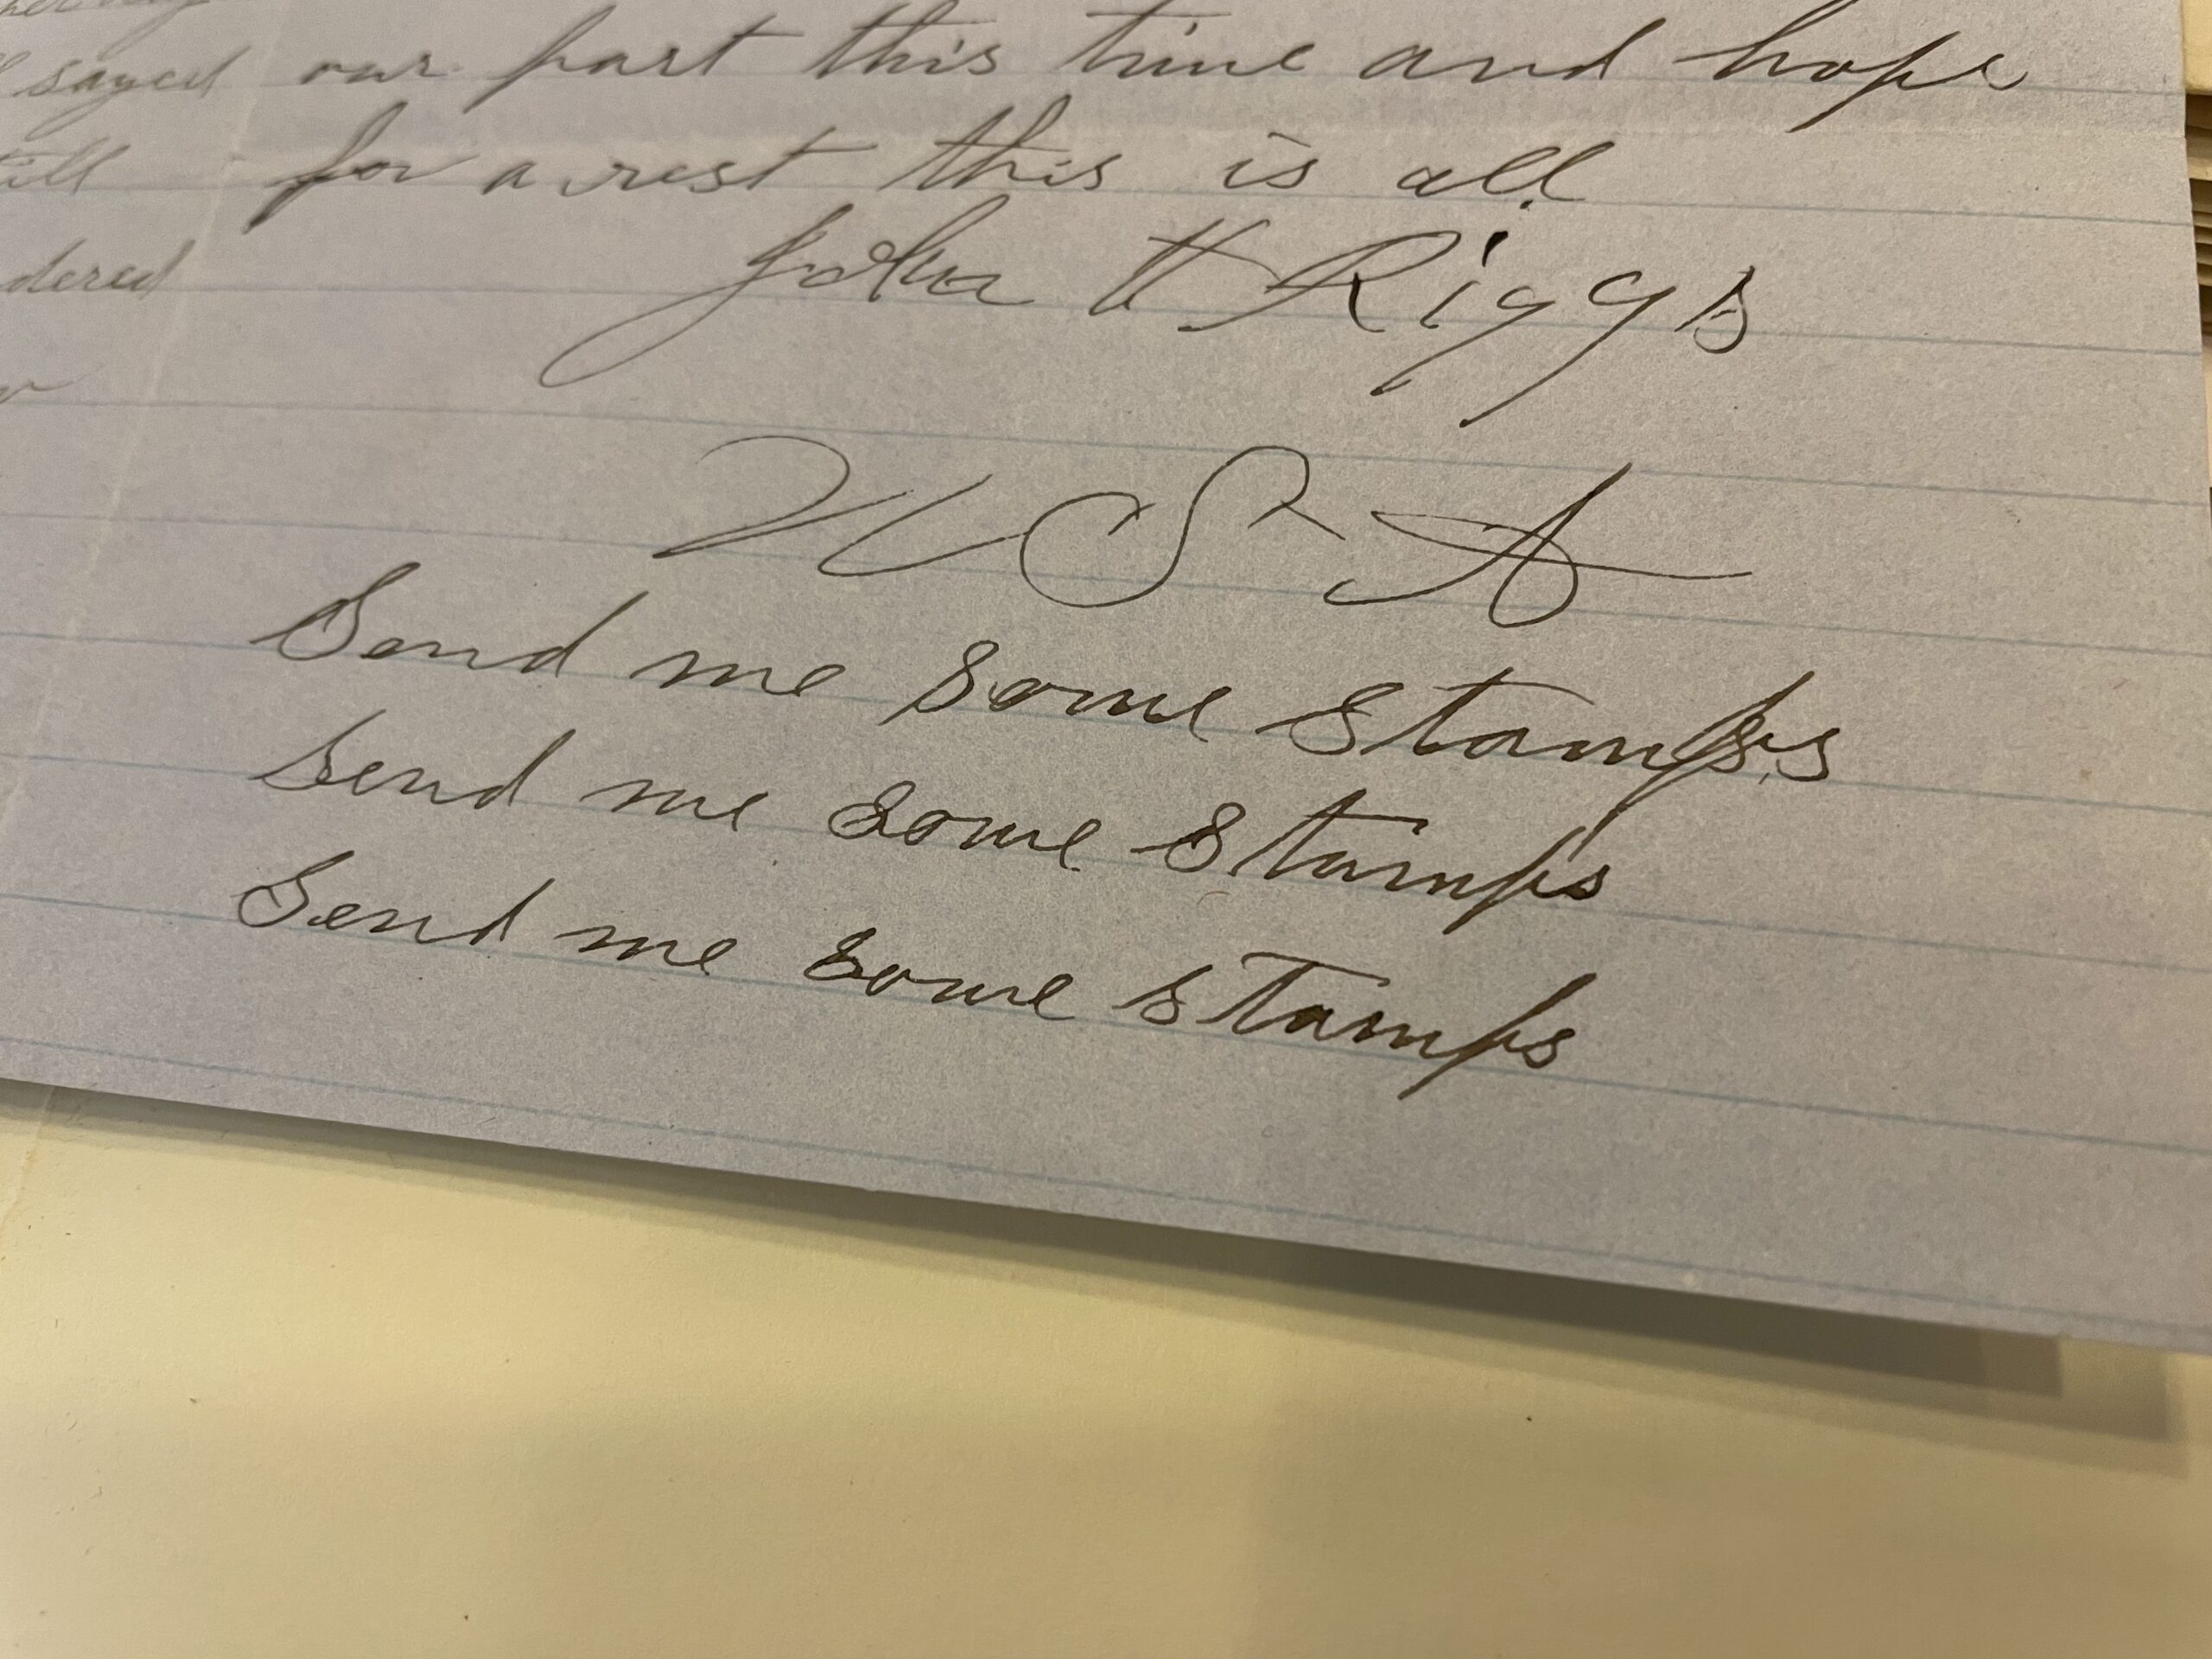 sayed our part this time and hope
till for a rest this is all
dered John H Riggs
U S A
Send me some stamps
Send me some stamps
Send me some stamps